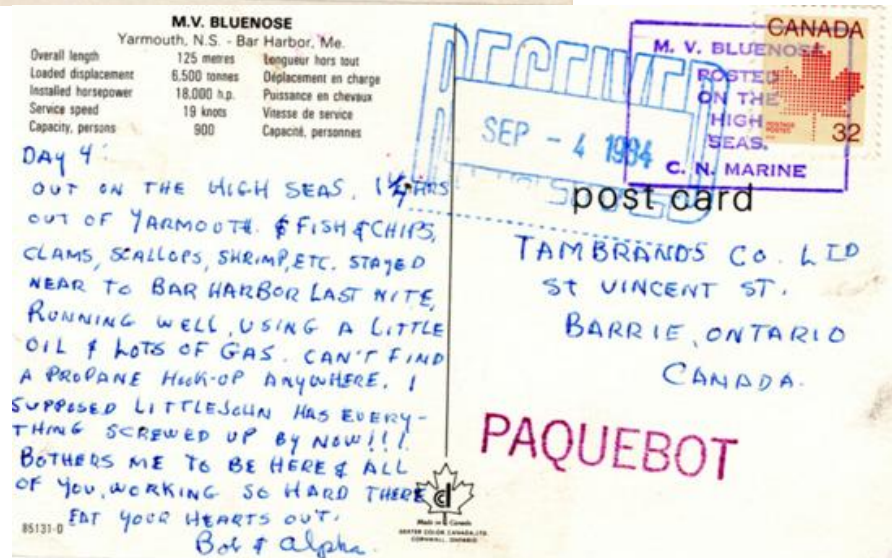 M.V. BLUENOSE
Yarmouth, N.S. - Bar Harbor, Me.
Overall length 125 metres Longueur hors tout
Loaded displacement 6,500 tonnes Déplacement en charge
Installed horsepower 18,000 h.p. Puissance en chevaux
Service speed 19 knots Vitesse de service
Capacity, persons 900 Capacité, personnes
DAY 4:
OUT ON THE HIGH SEAS. HRS
OUT OF YARMOUTH. & FISH & CHIPS,
CLAMS, SCALLOPS, SHRIMP, ETC. STAYED
NEAR TO BAR HARBOR LAST NITE,
RUNNING WELL, USING A LITTLE
OIL & LOTS OF GAS. CAN'T FIND
A PROPANE HOOK-UP ANYWHERE. I
SUPPOSED LITTLEJOHN HAS EVERY-
THING SCREWED UP BY NOW!!!
BOTHERS ME TO BE HERE & ALL
OF YOU, WORKING SO HARD THERE
EAT YOUR HEARTS OUT.
Bob & Alpha.
85131-D
Made in Canada
DEXTER COLOR CANADA, LTD.
CORNWALL, ONTARIO
RECEIVED
SEP - 4 1984
M. V. BLUENOSE
POSTED
ON THE
HIGH
SEAS.
C. N. MARINE
CANADA
POSTAGE
POSTES
32
post card
TAMBRANDS CO. LTD
ST VINCENT ST.
BARRIE, ONTARIO
CANADA.
PAQUEBOT